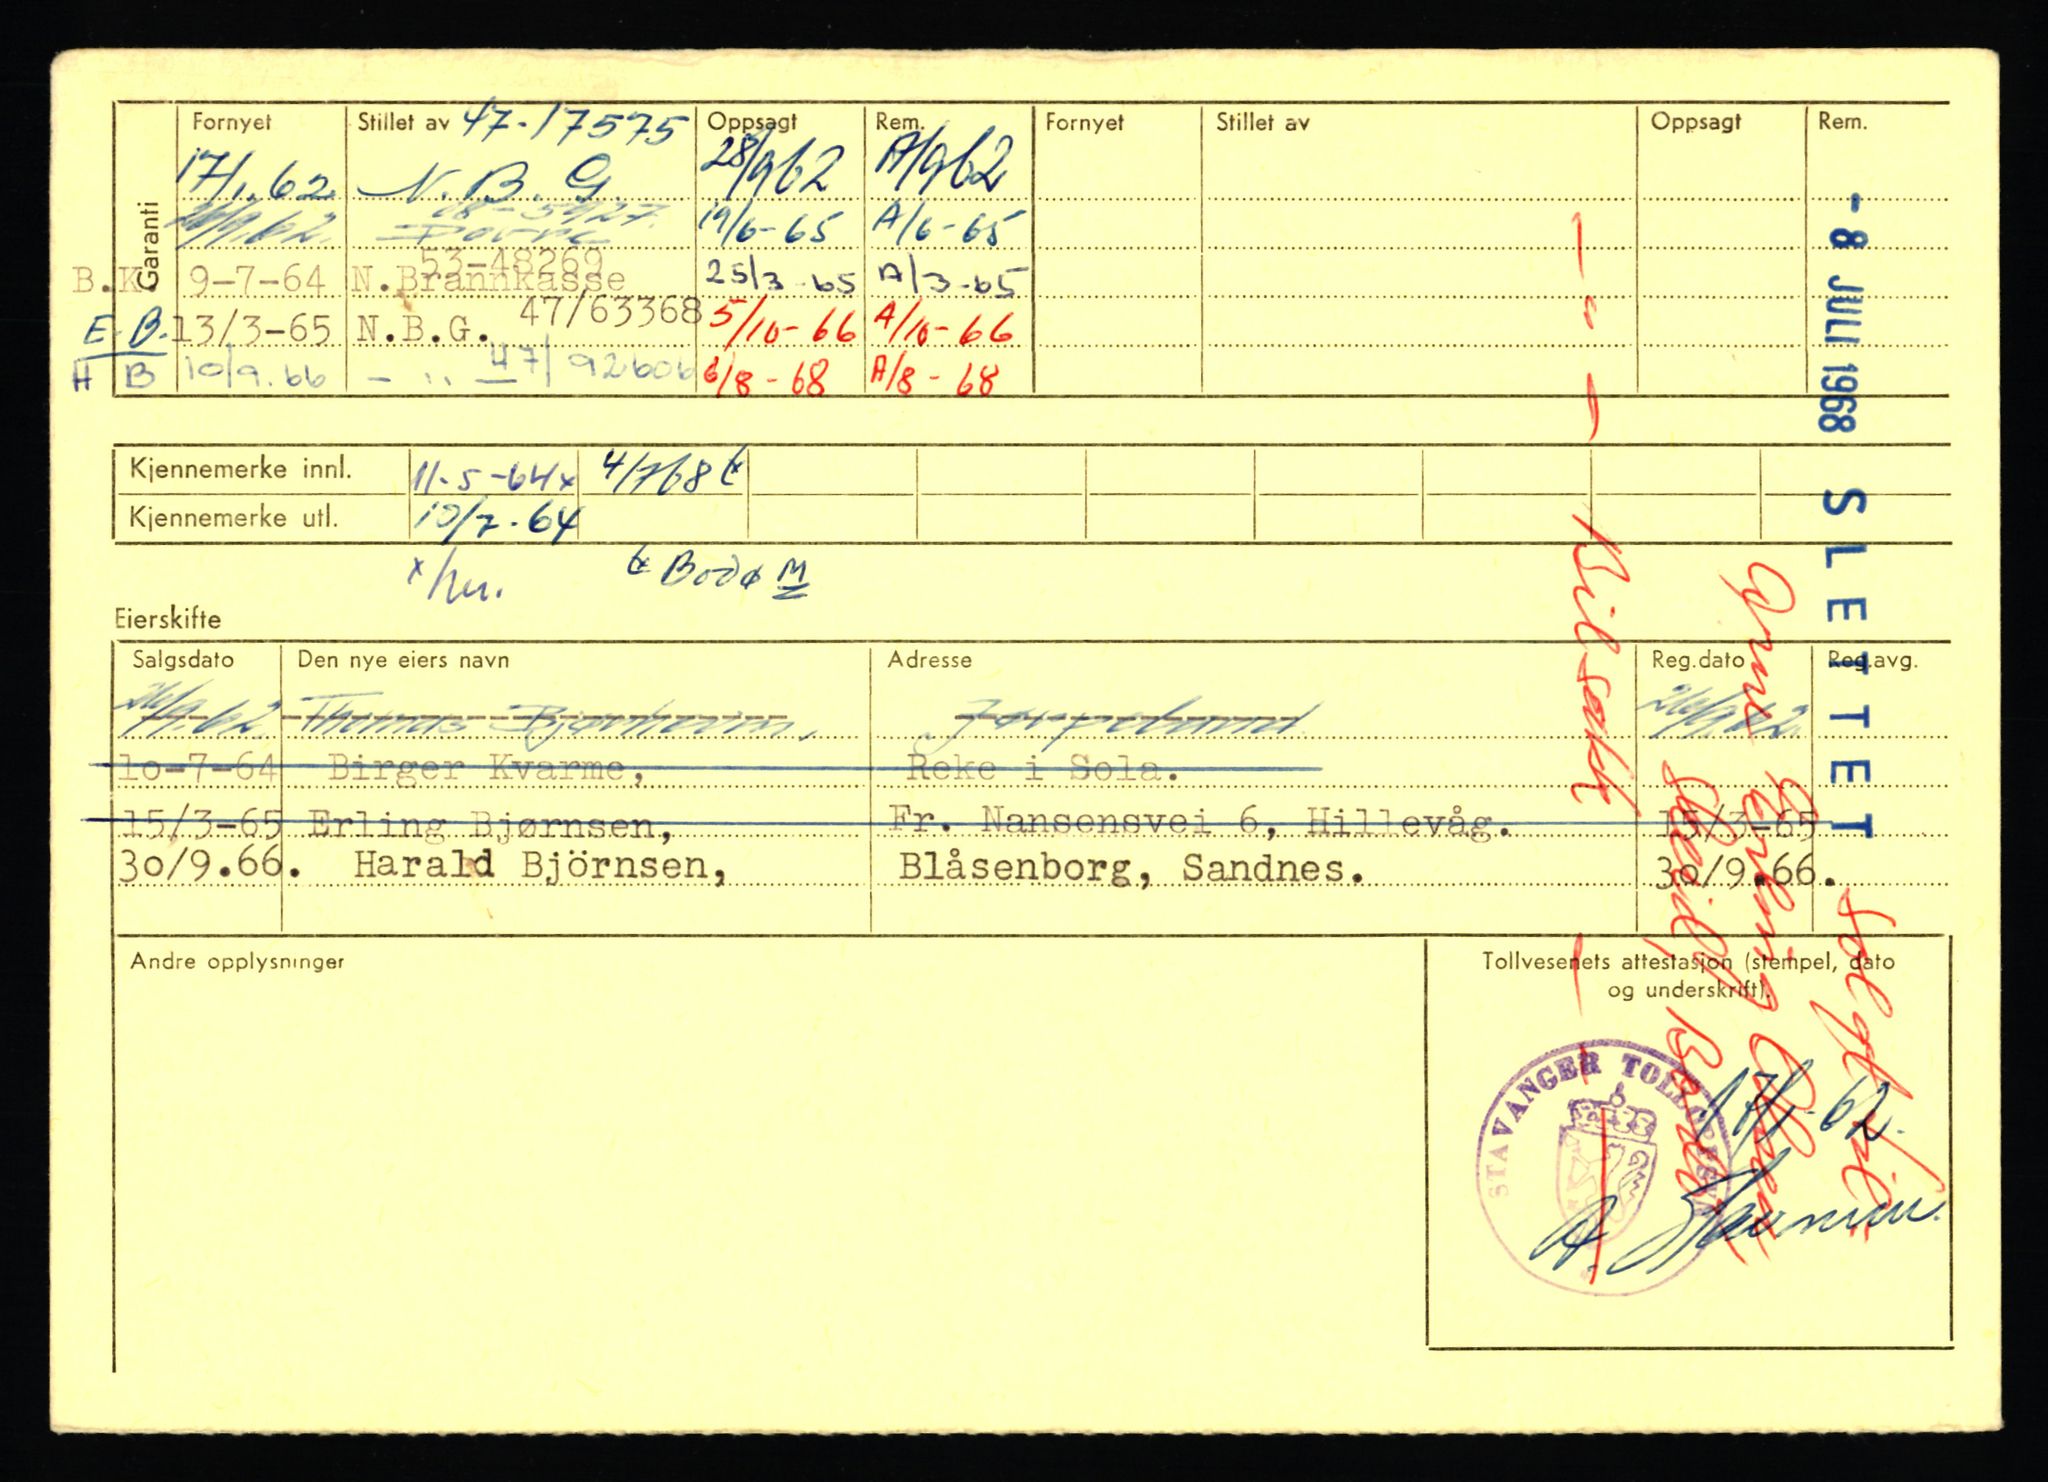 Garanti
Fornyet Stillet av 47-17575 Oppsagt Rem. Fornyet Stillet av Oppsagt Rem.
17/1.62 N.B.G. 28/9 62 A/9 62
26/9.62. 19/6-65 A/6-65
53-48269
B.K. 9-7-64 N.Brannkasse 25/3-65 A/3-65
E.B. 13/3-65 N.B.G. 47/63368 5/10-66 A/10-66
H B 10/9.66 - " - 47/ 92606 6/8-68 A/8-68
Kjennemerke innl. 11-5-64x 4/768
Kjennemerke utl. 10/7-64
Bodø M
Eierskifte
Salgsdato Den nye eiers navn Adresse Reg.dato Reg.avg.
26/9.62. Thomas Bjørheim, Jørpeland 26/9.62.
10-7-64 Birger Kvarme, Reke i Sola.
15/3-65 Erling Bjørnsen, Fr. Nansensvei 6, Hillevåg. 15/3-65
30/9.66. Harald Björnsen, Blåsenborg, Sandnes. 30/9.66.
Andre opplysninger
Tollvesenets attestasjon (stempel, dato
og underskrift).
STAVANGER TOLLOPPSYN
17/1-62.
- 8 JULI 1968 SLETTET
Solgt til
Arne Erling Olsen
Bodø
- " - Bilsakk -